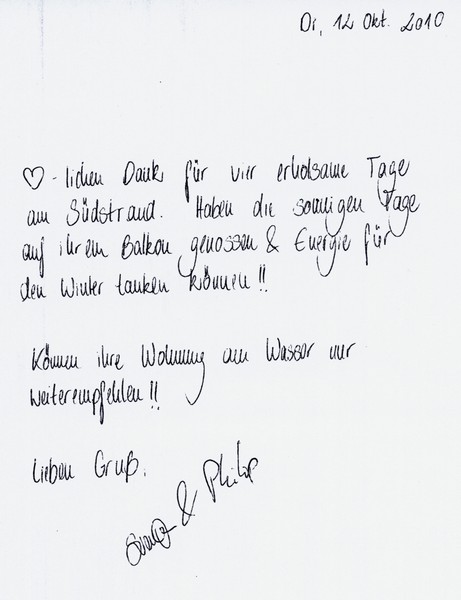 Di, 12 Okt. 2010
♡-lichen Dank für vier erholsame Tage
am Südstrand. Haben die sonnigen Tage
auf ihrem Balkon genossen & Energie für
den Winter tanken können!!
Können ihre Wohnung am Wasser nur
weiterempfehlen!!
Lieben Gruß,
& Philip